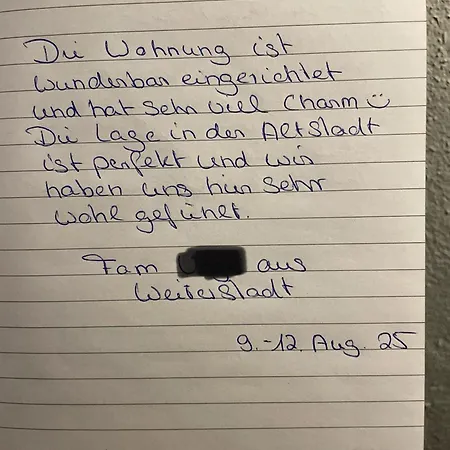 Die Wohnung ist
wunderbar eingerichtet
und hat sehr viel Charm ☺
Die Lage in der Altstadt
ist perfekt und wir
haben uns hier sehr
wohl gefühlt.
Fam aus
Weiterstadt
9.-12. Aug. 25